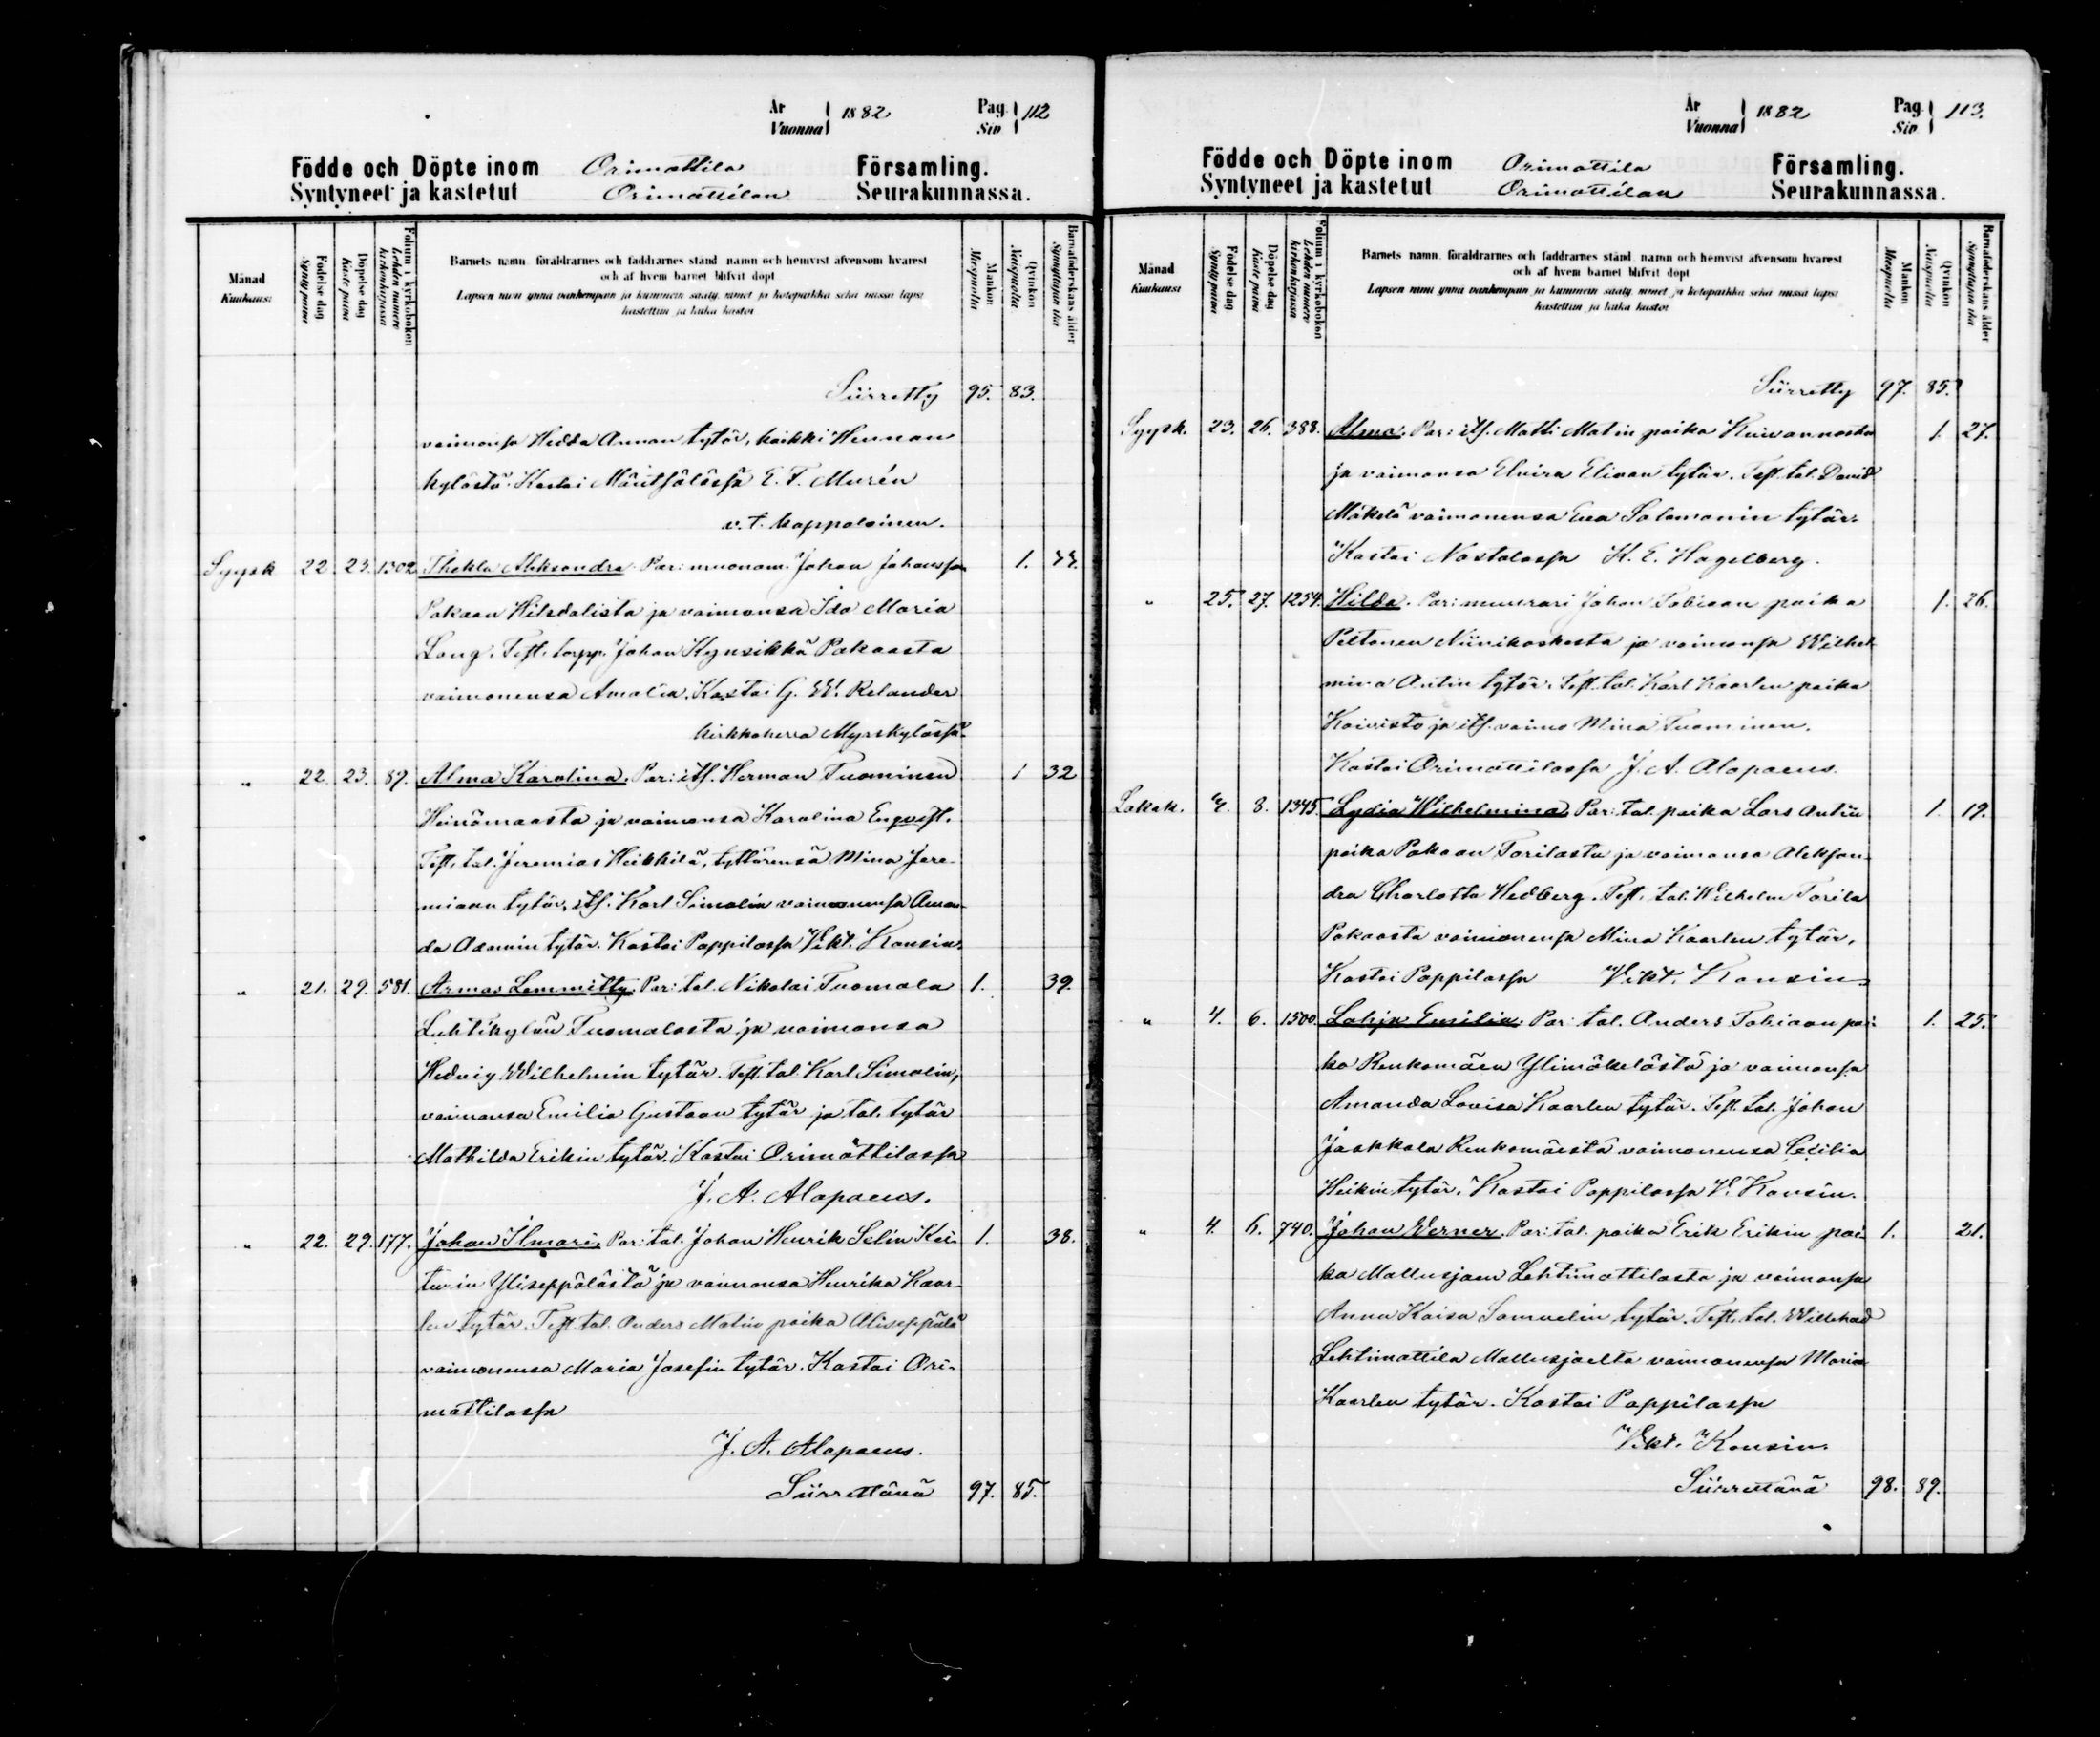 År Vuonna 1882 Pag. Siv 112
Födde och Döpte inom Orimattila Församling.
Syntyneet ja kastetut Orimattilan Seurakunnassa.
Månad Kuukausi
Födelse dag Synty päivä
Döpelse dag Kaste päivä
Folium i kyrkoboken Lehden numero kirkonkirjassa
Barnets namn, föräldrarnes och faddrarnes stånd, namn och hemvist äfvensom hvarest
och af hvem barnet blifvit döpt
Lapsen nimi ynnä vanhempain ja kummein sääty, nimet ja kotopaikka sekä missä lapsi
kastettiin ja kuka kastoi
Mankön Miespuolia
Qvinkön Naispuolia
Barnaföderskans ålder Synnyttäjän ikä
Siirretty 95. 83.
vaimonsa Hedda Annan tytär, kaikki Hennan
kylästä. Kastoi Mäntsälässä E. F. Murén
v. t. kappalainen.
Syysk 22 23. 1302 Thekla Aleksandra. Par: muonam. Johan Johansson 1. 44.
Pakaan Hilsdalista ja vaimonsa Ida Maria
Lang. Test. torpp. Johan Kynsikkä Pakaasta
vaimonensa Amalia. Kastoi G. W. Relander
kirkkoherra Myrskylässä.
" 22. 23. 89. Alma Karolina. Par: its. Herman Tuominen 1 32
Heinämaasta ja vaimonsa Karolina Enqvist.
Test. tal. Jeremias Heikkilä, tyttärensä Mina Jere-
miaan tytär, its. Karl Simolin vaimonensa Aman-
da Adamin tytär. Kastoi Pappilassa Vikt. Konsin.
" 21. 29. 581. Armas Lemmitty. Par: tal. Nikolai Tuomala 1. 39.
Luhtikylän Tuomalasta ja vaimonsa
Hedvig Wilhelmin tytär. Test. tal. Karl Simolin,
vaimonsa Emilia Gustaan tytär ja tal. tytär
Mathilda Erikin tytär. Kastoi Orimattilassa
J. A. Alopaeus.
" 22. 29. 177. Johan Ilmari. Par: tal. Johan Henrik Selin Kei- 1. 38.
tuin Yliseppälästä ja vaimonsa Henrika Kaar-
len tytär. Test. tal. Anders Matin poika Aliseppälä
vaimonensa Maria Josefin tytär. Kastoi Ori-
mattilassa
J. A. Alopaeus.
Siirrettävä 97. 85.
År Vuonna 1882 Pag. Siv 113.
Födde och Döpte inom Orimattila Församling.
Syntyneet ja kastetut Orimattilan Seurakunnassa.
Månad Kuukausi
Födelse dag Synty päivä
Döpelse dag Kaste päivä
Folium i kyrkoboken Lehden numero kirkonkirjassa
Barnets namn, föräldrarnes och faddrarnes stånd, namn och hemvist äfvensom hvarest
och af hvem barnet blifvit döpt
Lapsen nimi ynnä vanhempain ja kummein sääty, nimet ja kotopaikka sekä missä lapsi
kastettiin ja kuka kastoi
Mankön Miespuolia
Qvinkön Naispuolia
Barnaföderskans ålder Synnyttäjän ikä
Siirretty 97. 85.
Syysk. 23. 26. 388. Alma. Par: its. Matti Matin poika Kuivannosta 1. 27.
ja vaimonsa Elvira Elivan tytär. Test. tal. David
Mäkelä vaimonensa Eva Salomonin tytär.
Kastoi Nastolassa K. E. Hagelberg.
" 25. 27. 1254. Hilda. Par: muurari Johan Tobiaan poika 1. 26.
Peltonen Niinikoskesta ja vaimonsa Wilhel-
mina Antin tytär. Test. tal. Karl Kaarlen poika
Koivisto ja its. vaimo Mina Tuominen.
Kastoi Orimattilassa J. A. Alopaeus.
Lokak. 8. 1345. Lydia Wilhelmina. Par: tal. poika Lars Antin 1. 19.
poika Pakaan Torilasta ja vaimonsa Aleksan-
dra Charlotta Hedberg. Test. tal. Wilhelm Torila
Pakaasta vaimonensa Mina Kaarlen tytär.
Kastoi Pappilassa Vikt. Konsin.
" 4. 6. 1500. Lahja Emilia. Par: tal. Anders Tobiaan poi- 1. 25.
ka Renkomäen Ylimäkelästä ja vaimonsa
Amanda Lovisa Kaarlen tytär. Test. tal. Johan
Jaakkola Renkomäestä vaimonensa Cecilia
Heikin tytär. Kastoi Pappilassa V. Konsin.
" 4. 6. 740. Johan Werner. Par: tal. poika Erik Erikin poi- 1. 21.
ka Mallusjoen Lehtimattilasta ja vaimonsa
Anna Kaisa Samuelin tytär. Test. tal. Willehad
Lehtimattila Mallusjoelta vaimonensa Maria
Kaarlen tytär. Kastoi Pappilassa
Vikt. Konsin.
Siirrettävä 98. 89.